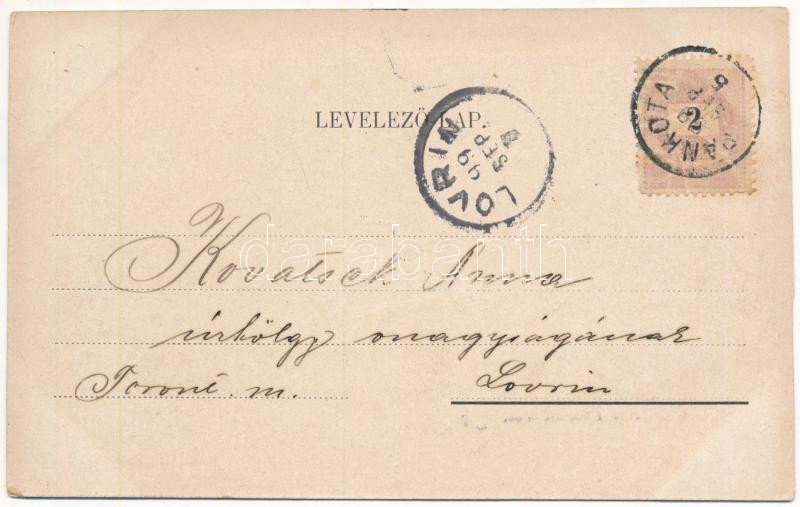 LEVELEZŐ-LAP.
LOVRIN
99
SEP.
PANKOTA
SEP
2
Kovatsch Anna
úrhölgy onagyságának
Toroné. m. Lovrin
darabanth